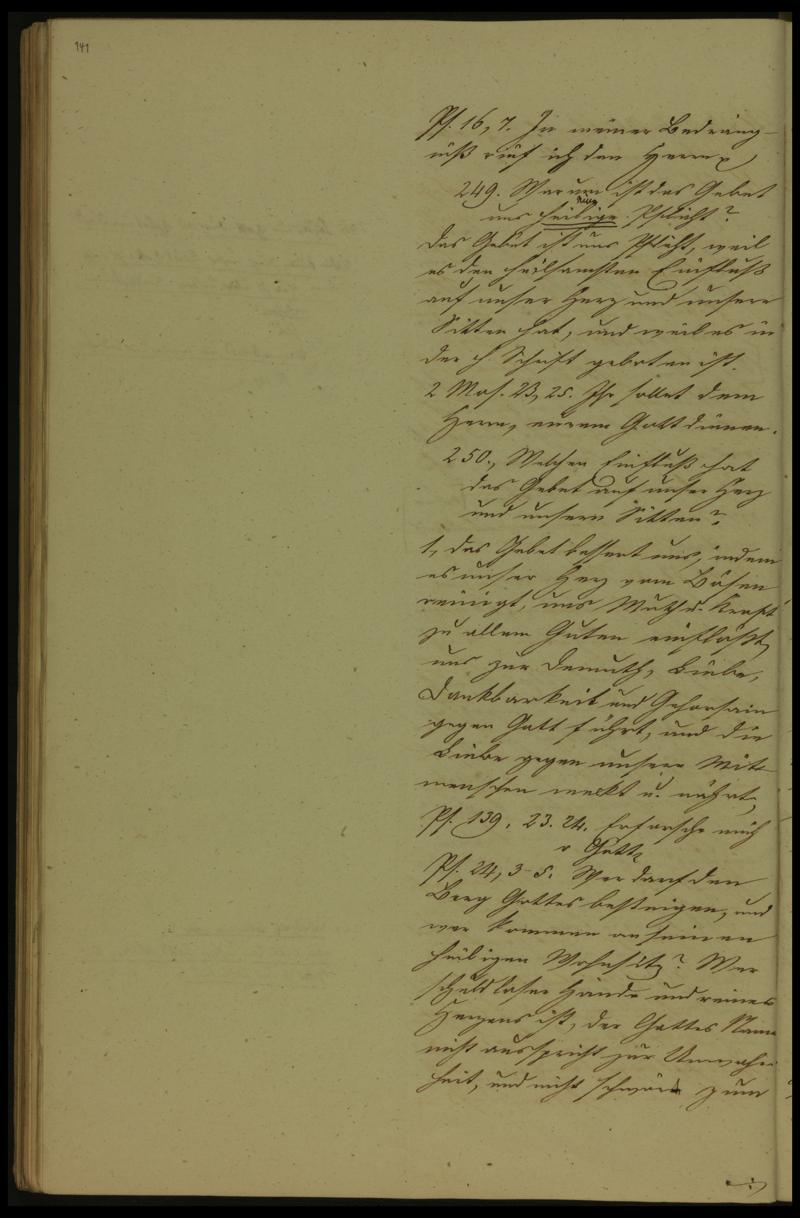 141
Ps. 16, 7. In meiner Bedräng-
niß rief ich den Herrn
249. Warum ist das Gebet
eine
uns heilige Pflicht?
Das Gebet ist uns Pflicht, weil
es den heilsamsten Einfluß
auf unser Herz und unsere
Sitten hat, und weil es in
der h. Schrift geboten ist.
2 Mos. 23, 25. Ihr sollet dem
Herrn, eurem Gott dienen.
250., Welchen Einfluß hat
das Gebet auf unser Herz
und unsere Sitten?
1, das Gebet bessert uns, indem
es unser Herz vom Bösen
reinigt, uns Muth u. Kraft
zu allem Guten einflößt,
uns zur Demuth, Liebe,
Dankbarkeit und Gehorsam
gegen Gott führt, und die
Liebe gegen unsere Mit-
menschen weckt u. nährt,
Ps. 139, 23. 24. Erforsche mich
o Gott
Ps. 24, 3-5. Wer darf den
Berg Gottes besteigen, und
wer kommen an seinen
heiligen Wohnsitz? Wer
schuldloser Hände und reines
Herzens ist, der Gottes Name
nicht ausspricht zur Unwahr-
heit, und nicht schwört zum